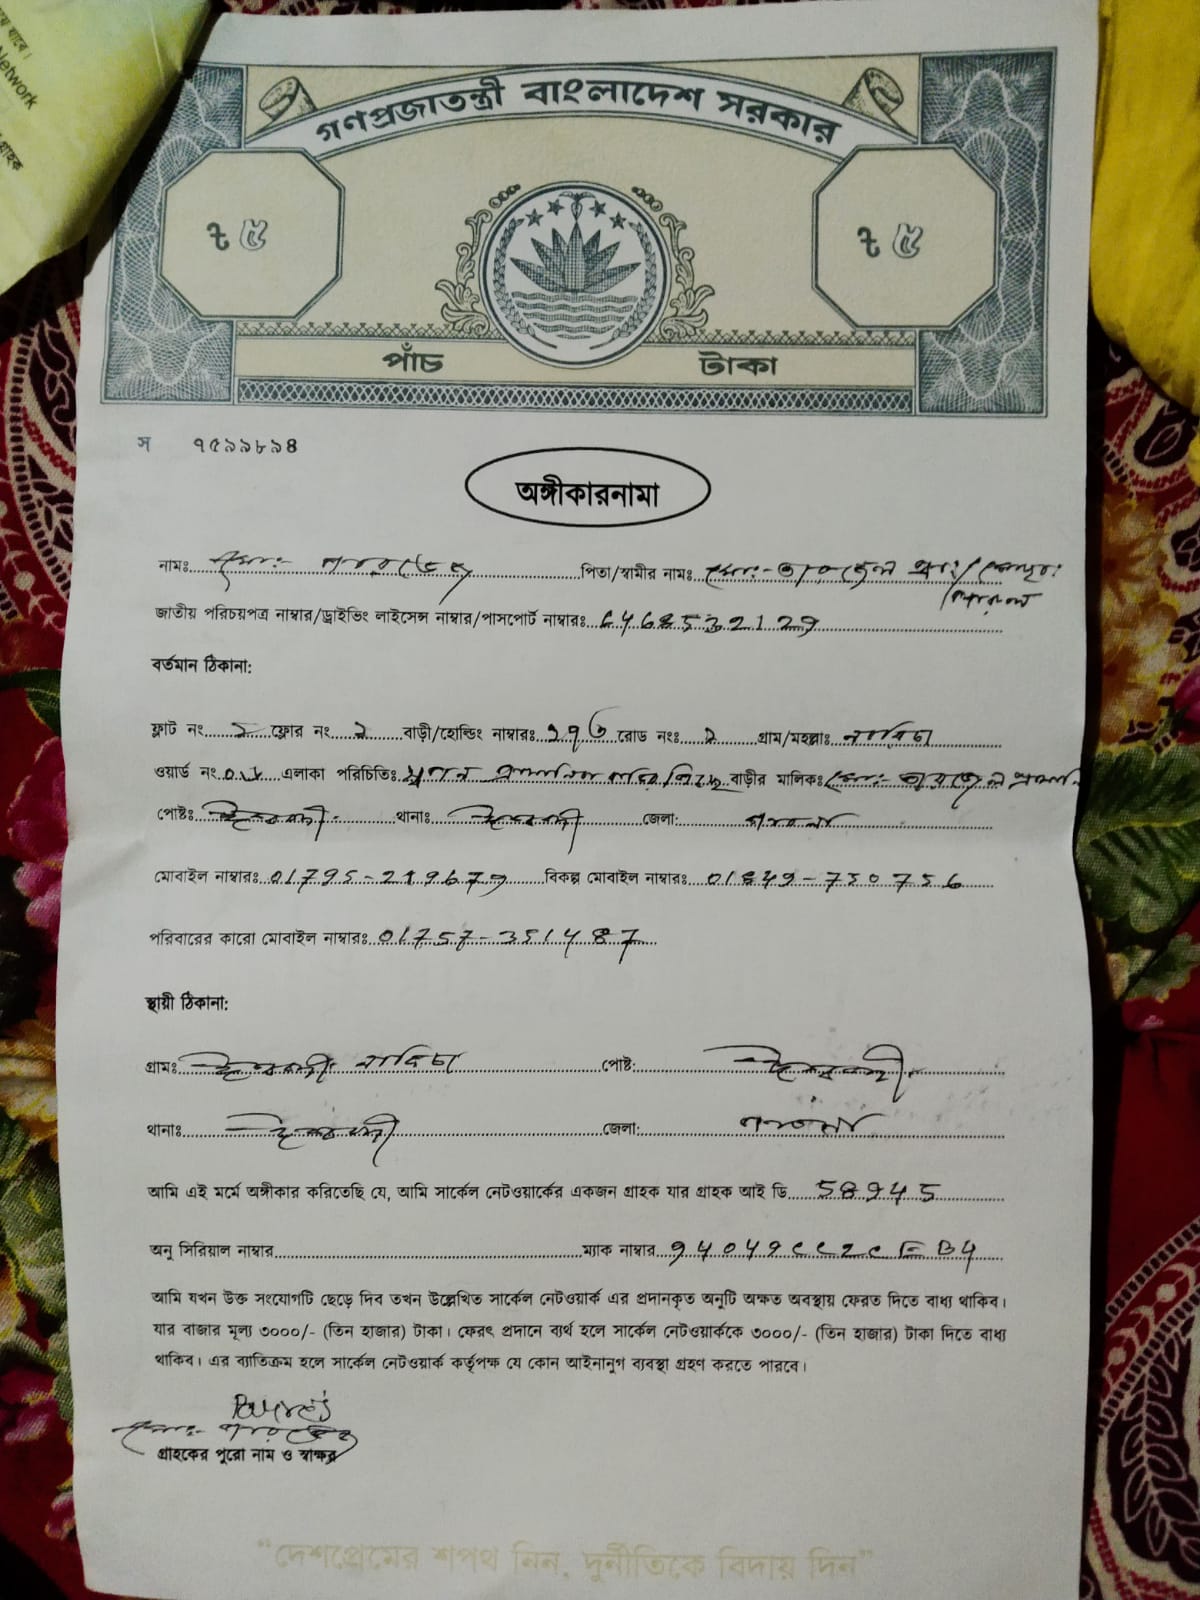 যে যাবে।
Network
গ্রাহক
গণপ্রজাতন্ত্রী বাংলাদেশ সরকার
৳ ৫ ৳ ৫
পাঁচ টাকা
স ৭৫৯৯৮৯৪
অঙ্গীকারনামা
নামঃ মোঃ- পারভেজ পিতা/স্বামীর নামঃ মোঃ-
জাতীয় পরিচয়পত্র নাম্বার/ড্রাইভিং লাইসেন্স নাম্বার/পাসপোর্ট নাম্বারঃ
বর্তমান ঠিকানা:
ফ্লাট নং ফ্লোর নং ২ বাড়ী/হোল্ডিং নাম্বারঃ রোড নংঃ ২ গ্রাম/মহল্লাঃ
ওয়ার্ড নং এলাকা পরিচিতিঃ বাড়ীর মালিকঃ মোঃ-
পোষ্টঃ ঈশ্বরদী থানাঃ ঈশ্বরদী জেলা: পাবনা
মোবাইল নাম্বারঃ 01795-219679 বিকল্প মোবাইল নাম্বারঃ 01849-750756
পরিবারের কারো মোবাইল নাম্বারঃ 01757-351487
স্থায়ী ঠিকানা:
গ্রামঃ ঈশ্বরদী পোষ্ট: ঈশ্বরদী
থানাঃ ঈশ্বরদী জেলা: পাবনা
আমি এই মর্মে অঙ্গীকার করিতেছি যে, আমি সার্কেল নেটওয়ার্কের একজন গ্রাহক যার গ্রাহক আই ডি 58945
অনু সিরিয়াল নাম্বার ম্যাক নাম্বার
আমি যখন উক্ত সংযোগটি ছেড়ে দিব তখন উল্লেখিত সার্কেল নেটওয়ার্ক এর প্রদানকৃত অনুটি অক্ষত অবস্থায় ফেরত দিতে বাধ্য থাকিব।
যার বাজার মূল্য ৩০০০/- (তিন হাজার) টাকা। ফেরৎ প্রদানে ব্যর্থ হলে সার্কেল নেটওয়ার্ককে ৩০০০/- (তিন হাজার) টাকা দিতে বাধ্য
থাকিব। এর ব্যতিক্রম হলে সার্কেল নেটওয়ার্ক কর্তৃপক্ষ যে কোন আইনানুগ ব্যবস্থা গ্রহণ করতে পারবে।
মোঃ- পারভেজ
গ্রাহকের পুরো নাম ও স্বাক্ষর
"দেশপ্রেমের শপথ নিন, দুর্নীতিকে বিদায় দিন"